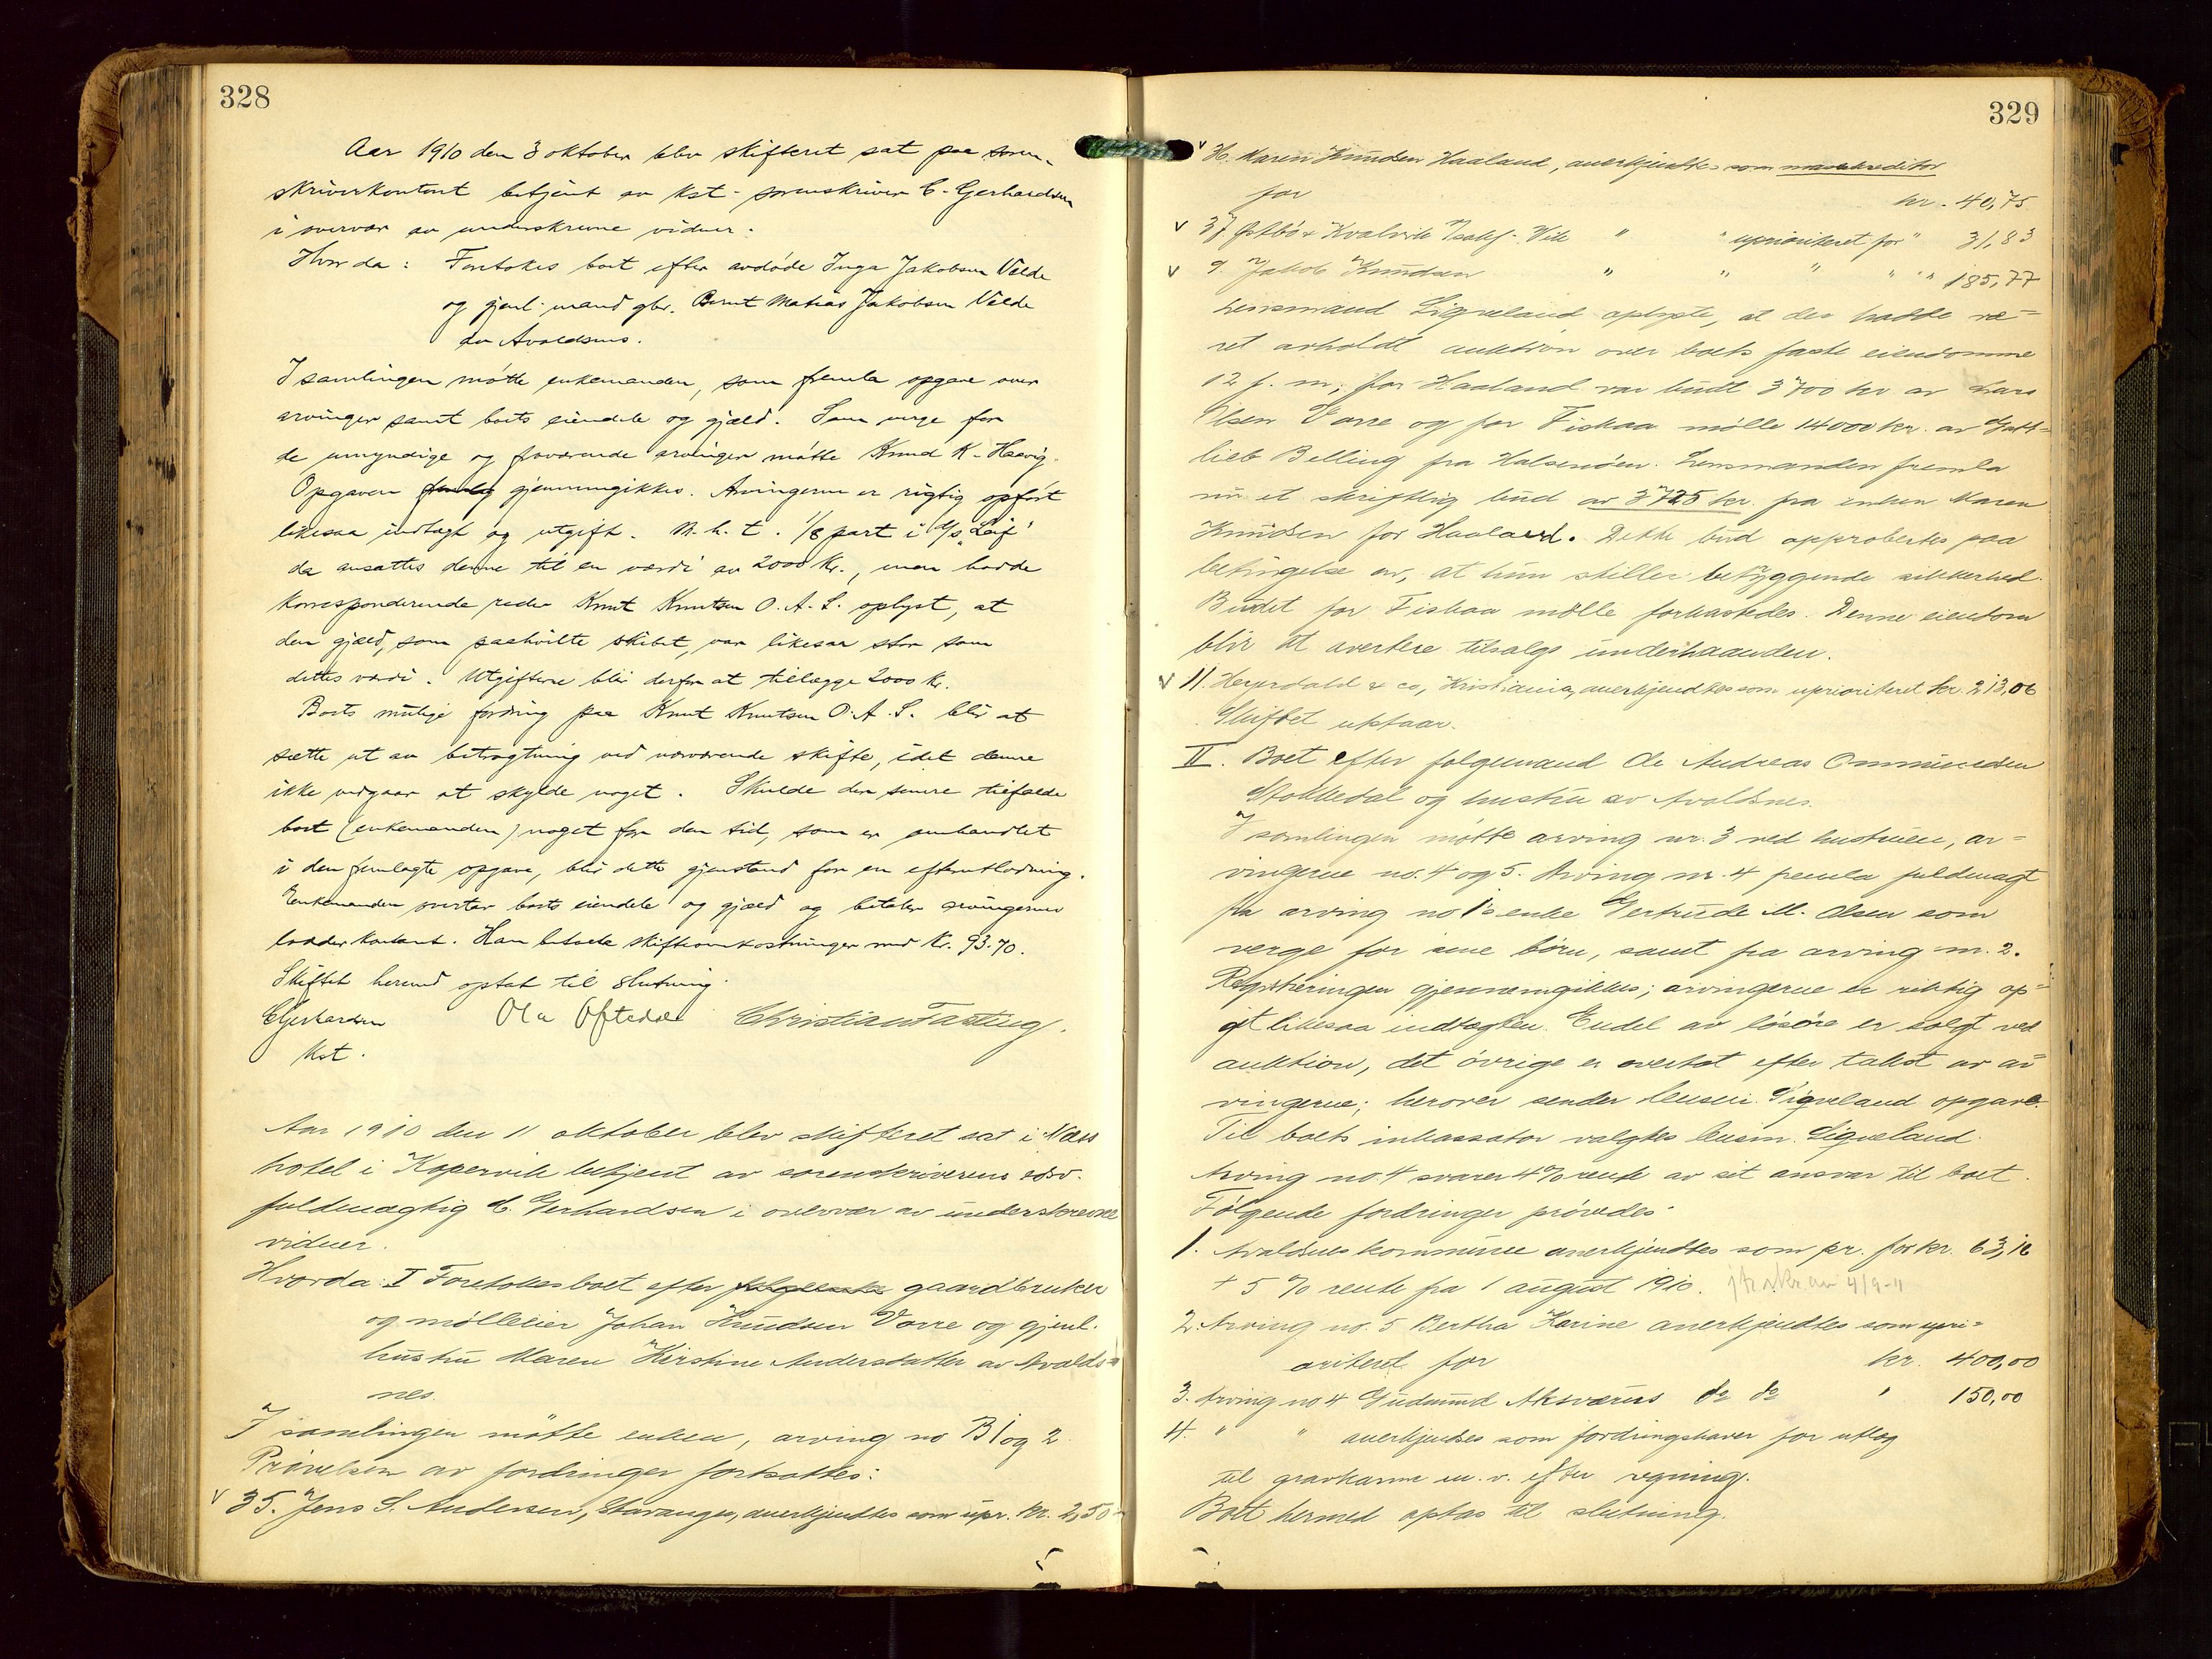 328
Aar 1910 den 3 oktober blev skifteret sat paa soren-
skriverkontoret betjent av kst. sorenskriver C. Gerhardsen
i overvær av underskrevne vidner.
Hvorda: Foretokes boet efter avdøde Inga Jakobsen Velde
og gjenl. mand gbr. Bernt Matias Jakobsen Velde
av Avaldsnes.
I samlingen møtte enkemanden, som fremla opgave over
arvinger samt boets eiendele og gjæld. Som verge for
de umyndige og fraværende arvinger møtte Knud K. Haavig.
Opgaven gjennemgikkes. Arvingerne er rigtig opført
likesaa indtægt og utgift. M. h. t. 1/8 part i D/s "Leif"
da ansattes denne til en værdi av 2000 Kr., men hadde
korresponderende reder Knut Knutsen O. A. S. oplyst, at
den gjæld, som paahvilte skibet, var likesaa stor som
dettes værdi. Utgiftene blir derfor at tillægge 2000 Kr.
Boets mulige fordring paa Knut Knutsen O. A. S. blir at
sætte ut av betragtning ved nærværende skifte, idet denne
ikke vedgaar at skylde noget. Skulde der senere tilfalde
boet (enkemanden) noget for den tid, som er omhandlet
i den fremlagte opgave, blir dette gjenstand for en efterutlodning.
Enkemanden overtar boets eiendele og gjæld og betaler arvingernes
lodder kontant. Han betalte skifteomkostninger med Kr. 93.70.
Skiftet herved optat til slutning.
CGerhardsen Ola Oftedal Christian Fasting.
kst.
Aar 1910 den 11 oktober blev skifteret sat i Næss
hotel i Kopervik betjent av sorenskriverens edsv.
fuldmægtig C. Gerhardsen i overvær av underskrevne
vidner.
Hvorda: I Foretokes boet efter gaardbruker
og mølleeier Johan Knudsen Vorre og gjenl.
hustru Maren Kirstine Andersdatter av Avalds-
nes.
I samlingen møtte enken, arving no B1 og 2.
Prøvelsen av fordringer fortsattes:
v 35. Jens S. Andersen, Stavanger, anerkjendtes som upr. kr. 2,50
329
v Maren Knudsen Haaland, anerkjendtes som massekreditor
for kr. 40,75
v 37 Østbø & Kvalvik Vik " " uprioriteret for " 31,83
v 9. Jakob Knudsen " " " " " " 185,77
Lensmand Ligveland oplyste, at der hadde væ-
ret avholdt auktion over boets faste eiendomme
12 f. m; for Haaland var budt 3700 kr av Lars
Olsen Vorre og for Fiskaa mølle 14000 kr. av Gott-
lieb Belling fra Halsenøen. Lensmanden fremla
nu et skriftlig bud av 3725 kr. fra enken Maren
Knudsen for Haaland. Dette bud approbertes paa
betingelse av, at hun stiller betryggende sikkerhed.
Budet for Fiskaa mølle forkastedes. Denne eiendom
blir at avertere tilsalgs underhaanden.
v 11. Heyerdahl & co, Kristiania, anerkjendtes som uprioriteret kr. 213,06
Skiftet utstaar.
II. Boet efter folgemand Ole Andreas Ommundsen
Stokkedal og hustru av Avaldsnes.
I samlingen møtte arving nr. 3 ved hustruen, ar-
vingerne no. 4 og 5. Arving nr. 4 fremla fuldmagt
fra arving no 1's enke Gertrude M. Olsen som
verge for sine børn, samt fra arving nr. 2.
Registreringen gjennemgikkes; arvingerne er riktig op-
git likesaa indtægten. Endel av løsøre er solgt ved
auktion, det øvrige er overtat efter takst av ar-
vingerne; herover sender lensm. Ligveland opgave.
Til boets inkassator valgtes lensm. Ligveland.
Arving no. 4 svarer 4% rente av sit ansvar til boet.
Følgende fordringer prøvedes:
1. Avaldsnes kommune anerkjendtes som pr. for kr. 63,16
+ 5 % rente fra 1 august 1910. 4/9-11
2. Arving no. 5 Bertha Karine anerkjendtes som upri-
oriteret for kr. 400,00
3. Arving no 4 Gudmund Aksværus do do " 150,00
4. " " anerkjendtes som fordringshaver for utlæg
til gravkarme m. v. efter regning.
Boet hermed optas til slutning.